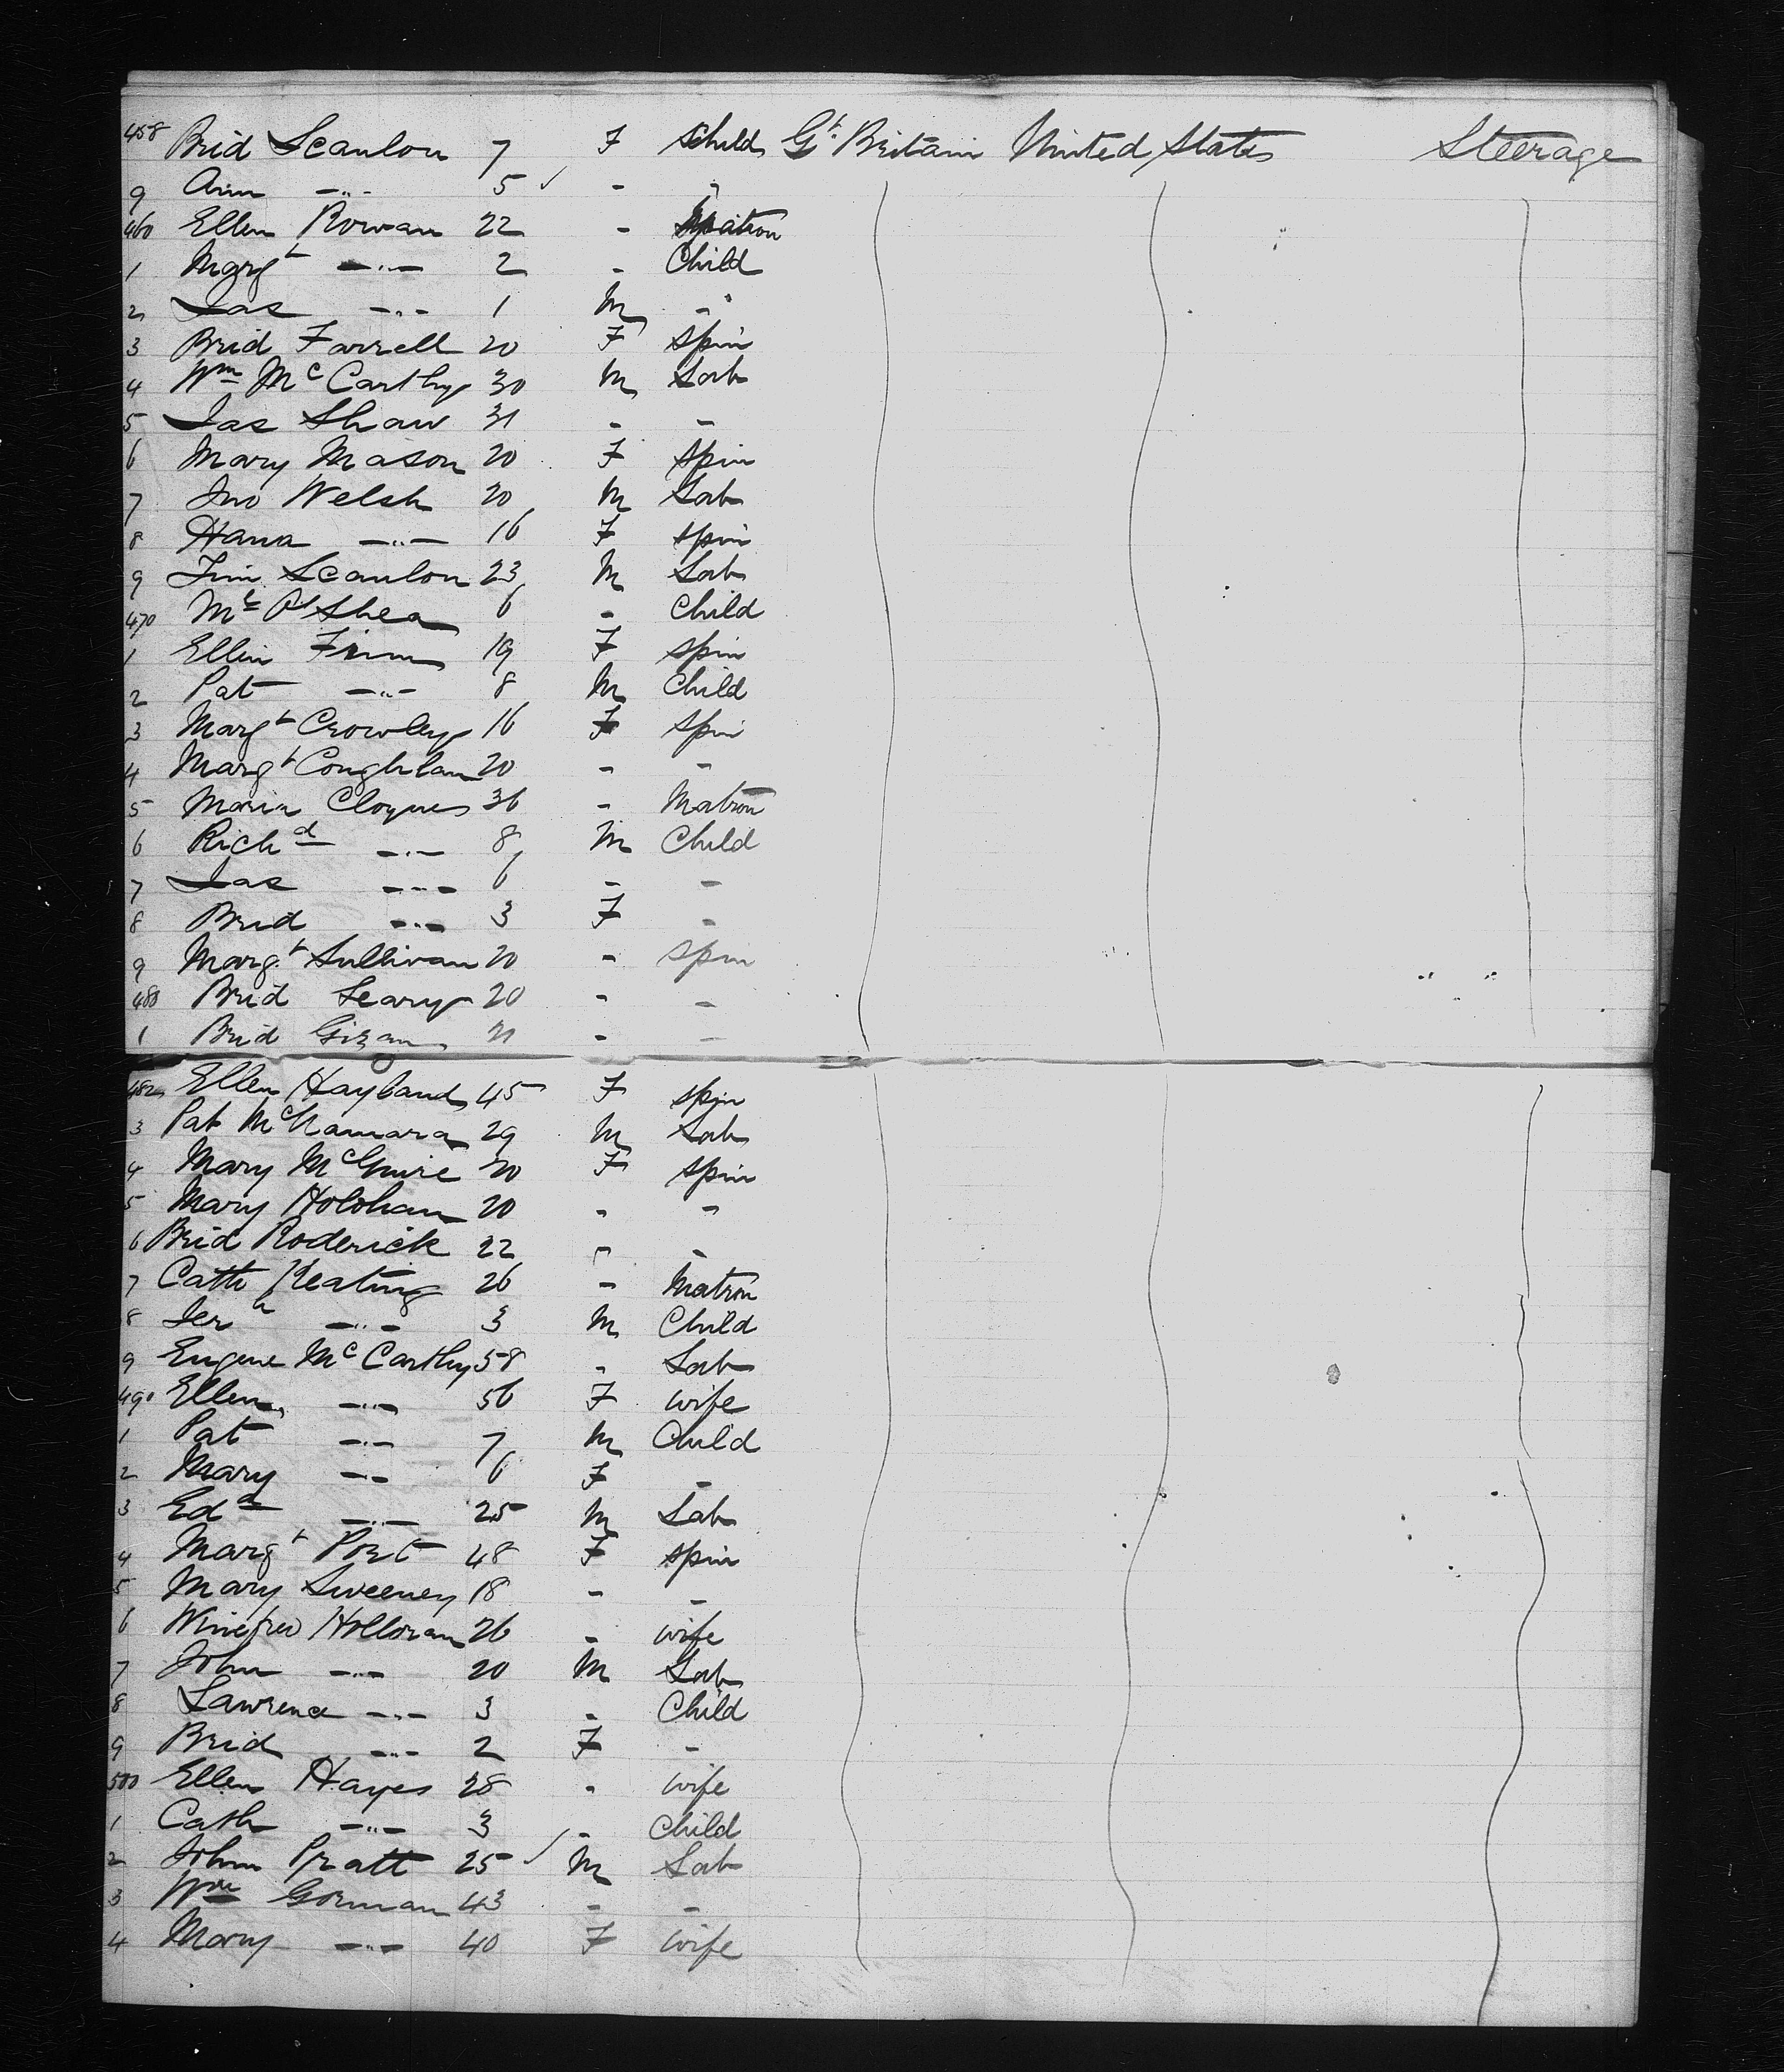 458 Brid Scanlon 7 F Child Gt Britain United States Steerage
9 Ann -"- 5 ✓ - -
460 Ellen Rowan 22 - Matron
1 Margt -"- 2 - Child
2 Jas -"- 1 M -
3 Brid Farrell 20 F Spin
4 Wm McCarthy 30 M Lab
5 Jas Shaw 31 - -
6 Mary Mason 20 F Spin
7 Jno Welsh 20 M Lab
8 Hana -"- 16 F Spin
9 Tim Scanlon 23 M Lab
470 Ml O'Shea 6 - Child
1 Ellen 19 F Spin
2 Pat -"- 8 M Child
3 Margt Crowley 16 F Spin
4 Margt Coughlan 20 - -
5 Maria Cloynes 36 - Matron
6 Richd -"- 8 M Child
7 Jas -"- 6 - -
8 Brid -"- 3 F -
9 Margt Sullivan 20 - Spin
480 Brid Leary 20 - -
1 Brid - -
482 Ellen Hayland 45 F Spin
3 Pat McNamara 29 M Lab
4 Mary McGuire 20 F Spin
5 Mary Holohan 20 - -
6 Brid Roderick 22 - -
7 Cath Keating 26 - Matron
8 Jerh -"- 3 M Child
9 Eugene McCarthy 58 - Lab
490 Ellen -"- 56 F Wife
1 Pat -"- 7 M Child
2 Mary -"- 6 F -
3 Edd -"- 25 M Lab
4 Margt 48 F Spin
5 Mary Sweeney 18 - -
6 Winefred Holloran 26 - Wife
7 John -"- 20 M Lab
8 Lawrence -"- 3 - Child
9 Brid -"- 2 F -
500 Ellen Hayes 28 - Wife
1 Cath -"- 3 - Child
2 John Pratt 25 ✓ M Lab
3 Wm Gorman 43 - -
4 Mary -"- 40 F Wife